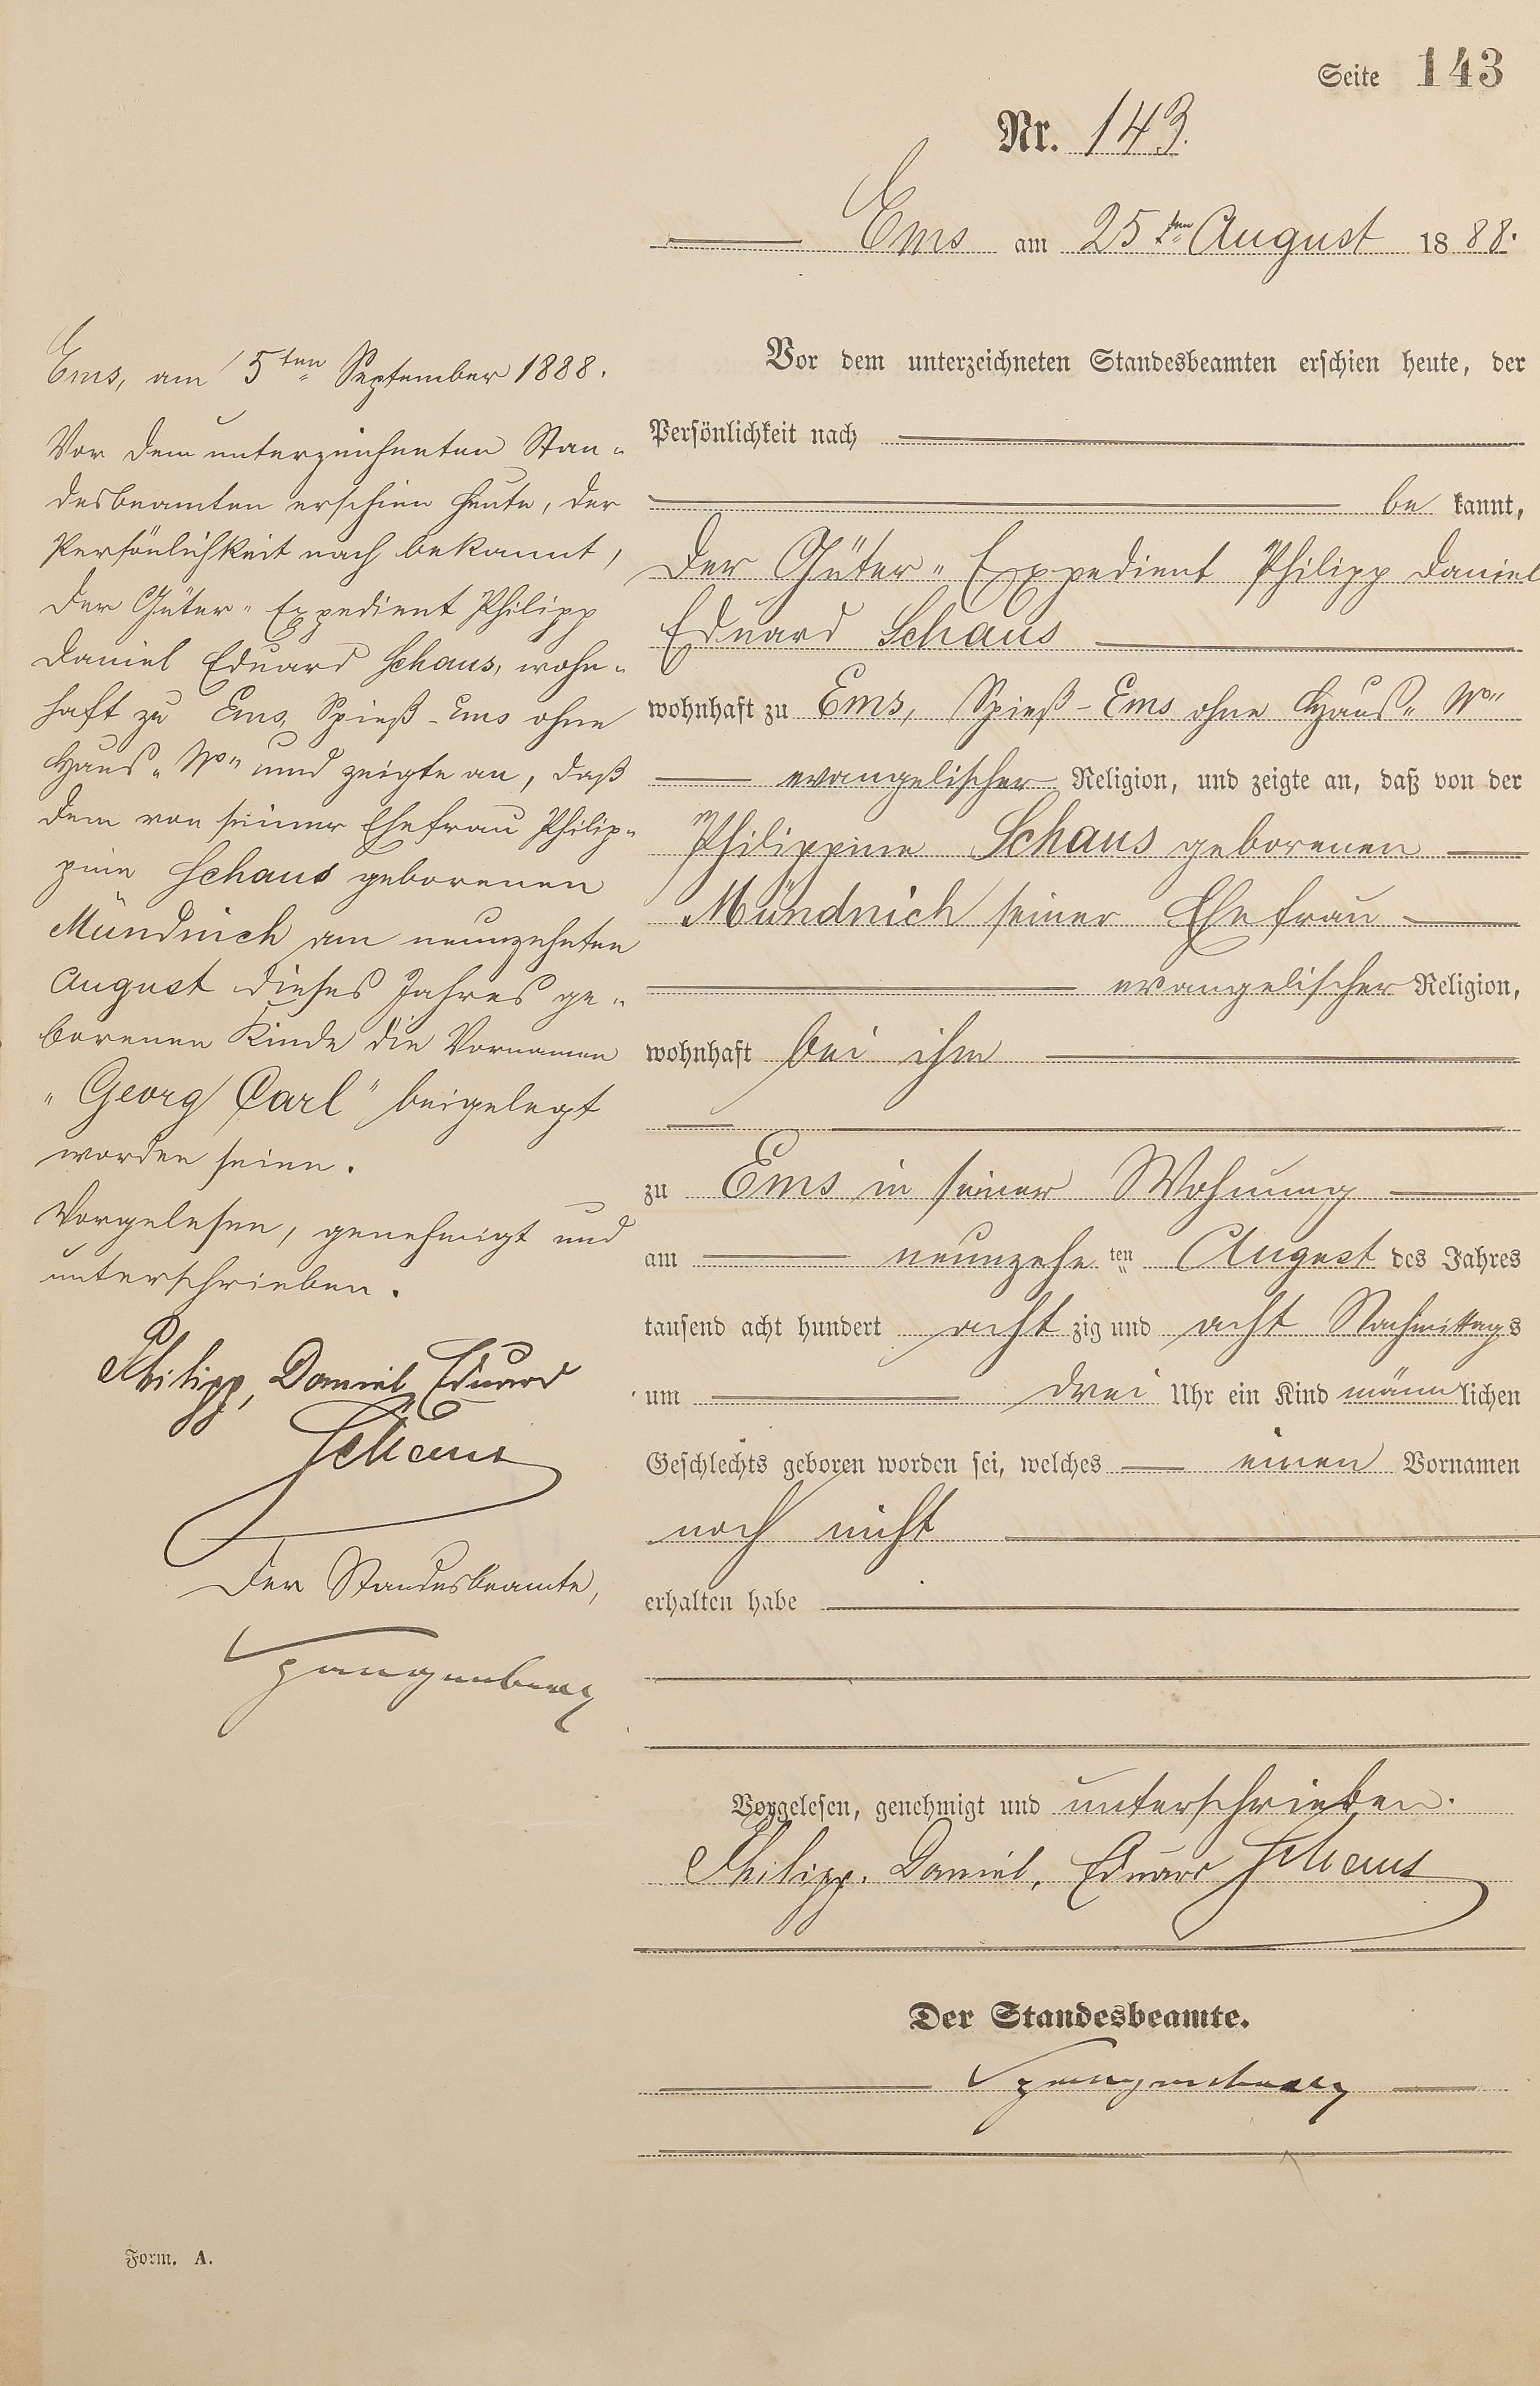 Seite 143
Nr. 143.
Ems am 25ten August 1888.
Vor dem unterzeichneten Standesbeamten erschien heute, der
Persönlichkeit nach
be kannt,
der Güter-Expedient Philipp Daniel
Eduard Schaus
wohnhaft zu Ems, Spieß-Ems ohne Haus-No
evangelischer Religion, und zeigte an, daß von der
Philippine Schaus geborenen
Mündnich seiner Ehefrau
evangelischer Religion,
wohnhaft bei ihm
zu Ems in seiner Wohnung
am neunzehnten August des Jahres
tausend acht hundert acht zig und acht Nachmittags
um drei Uhr ein Kind männlichen
Geschlechts geboren worden sei, welches einen Vornamen
noch nicht
erhalten habe
Vorgelesen, genehmigt und unterschrieben.
Philipp. Daniel, Eduard Schaus
Der Standesbeamte.
Ems, am 15ten September 1888.
Vor dem unterzeichneten Stan-
desbeamten erschien heute, der
Persönlichkeit nach bekannt,
der Güter-Expedient Philipp
Daniel Eduard Schaus, wohn-
haft zu Ems, Spieß-Ems ohne
Haus-No und zeigte an, daß
dem von seiner Ehefrau Philip-
pine Schaus geborenen
Mündnich am neunzehnten
August dieses Jahres ge-
borenen Kinde die Vornamen
"Georg Carl" beigelegt
worden seien.
Vorgelesen, genehmigt und
unterschrieben.
Philipp, Daniel, Eduard
Schaus
Der Standesbeamte,
Form. A.